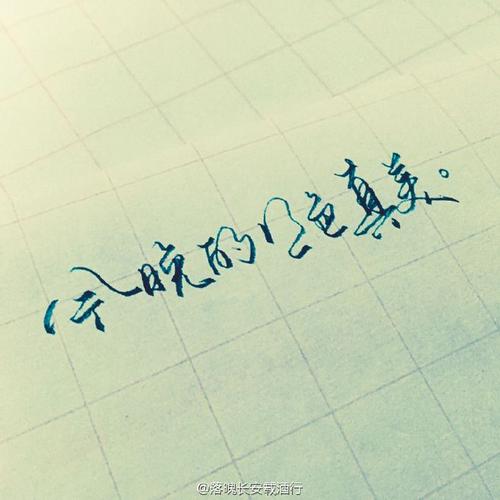 今晚的月色真美。
@落魄长安载酒行